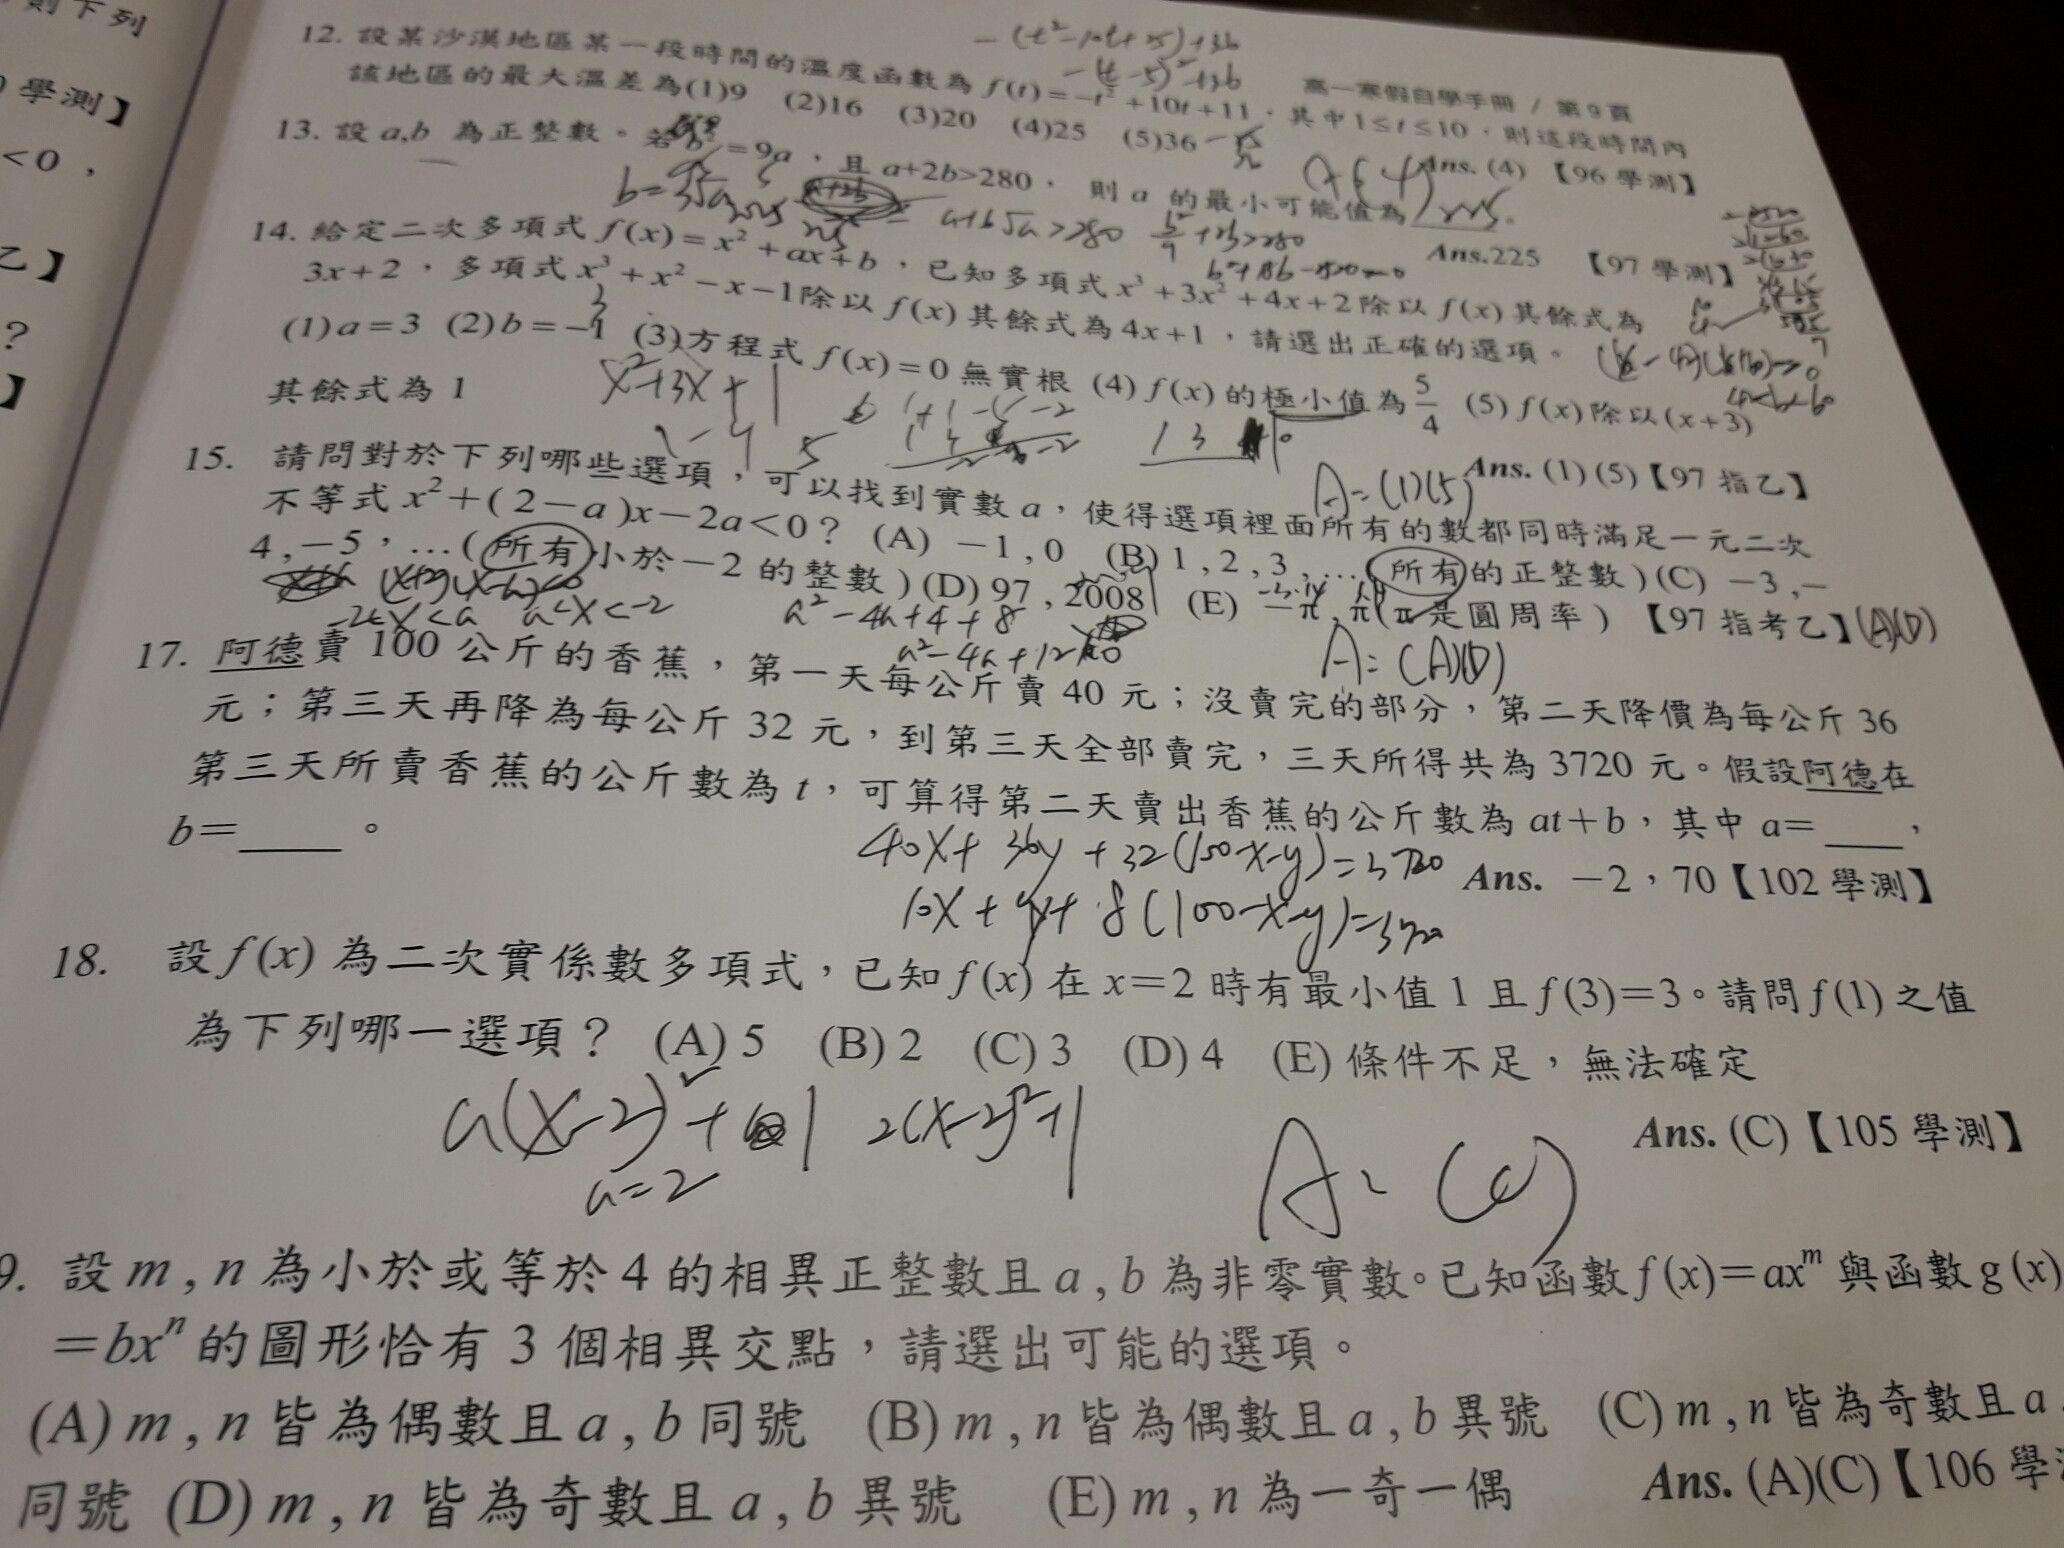 則下列
學測】
<0，
乙】
?
】
高一寒假自學手冊 / 第9頁
12. 設某沙漠地區某一段時間的溫度函數為 f(t)=−t²+10t+11，其中1≤t≤10，則這段時間內
該地區的最大溫差為(1)9 (2)16 (3)20 (4)25 (5)36
Ans. (4) 【96 學測】
13. 設 a,b 為正整數。若 b²=9a，且 a+2b>280，則 a 的最小可能值為
Ans.225 【97 學測】
14. 給定二次多項式 f(x)=x²+ax+b，已知多項式 x³+3x²+4x+2除以 f(x) 其餘式為
3x+2，多項式 x³+x²−x−1除以 f(x) 其餘式為 4x+1，請選出正確的選項。
(1)a=3 (2)b=−1 (3)方程式 f(x)=0 無實根 (4) f(x) 的極小值為 5/4 (5) f(x) 除以(x+3)
其餘式為 1
x²+3x+1
A=(1)(5)
Ans. (1) (5)【97 指乙】
15. 請問對於下列哪些選項，可以找到實數a，使得選項裡面所有的數都同時滿足一元二次
不等式 x²+(2−a)x−2a<0？ (A) −1,0 (B) 1,2,3,…(所有的正整數) (C) −3,−
4,−5，…(所有小於−2 的整數) (D) 97,2008 (E) −π,π(π是圓周率) 【97 指考乙】(A)(D)
-2<x<a a<x<-2
a²-4a+4+8
a²-4a+12
A=(A)(D)
17. 阿德賣 100 公斤的香蕉，第一天每公斤賣 40 元；沒賣完的部分，第二天降價為每公斤 36
元；第三天再降為每公斤 32 元，到第三天全部賣完，三天所得共為 3720 元。假設阿德在
第三天所賣香蕉的公斤數為 t，可算得第二天賣出香蕉的公斤數為 at+b，其中 a=____，
b=____。
40x+36y+32(100-x-y)=3720
Ans. −2，70【102 學測】
18. 設 f(x) 為二次實係數多項式，已知 f(x) 在 x=2 時有最小值 1 且 f(3)=3。請問 f(1) 之值
為下列哪一選項？ (A) 5 (B) 2 (C) 3 (D) 4 (E) 條件不足，無法確定
a(x-2)²+1 2(x-2)²+1
a=2
Ans. (C)【105 學測】
9. 設 m,n 為小於或等於 4 的相異正整數且 a,b 為非零實數。已知函數 f(x)=axᵐ 與函數 g(x)
=bxⁿ 的圖形恰有 3 個相異交點，請選出可能的選項。
(A) m,n 皆為偶數且 a,b 同號 (B) m,n 皆為偶數且 a,b 異號 (C) m,n 皆為奇數且 a
同號 (D) m,n 皆為奇數且 a,b 異號 (E) m,n 為一奇一偶
Ans. (A)(C)【106 學